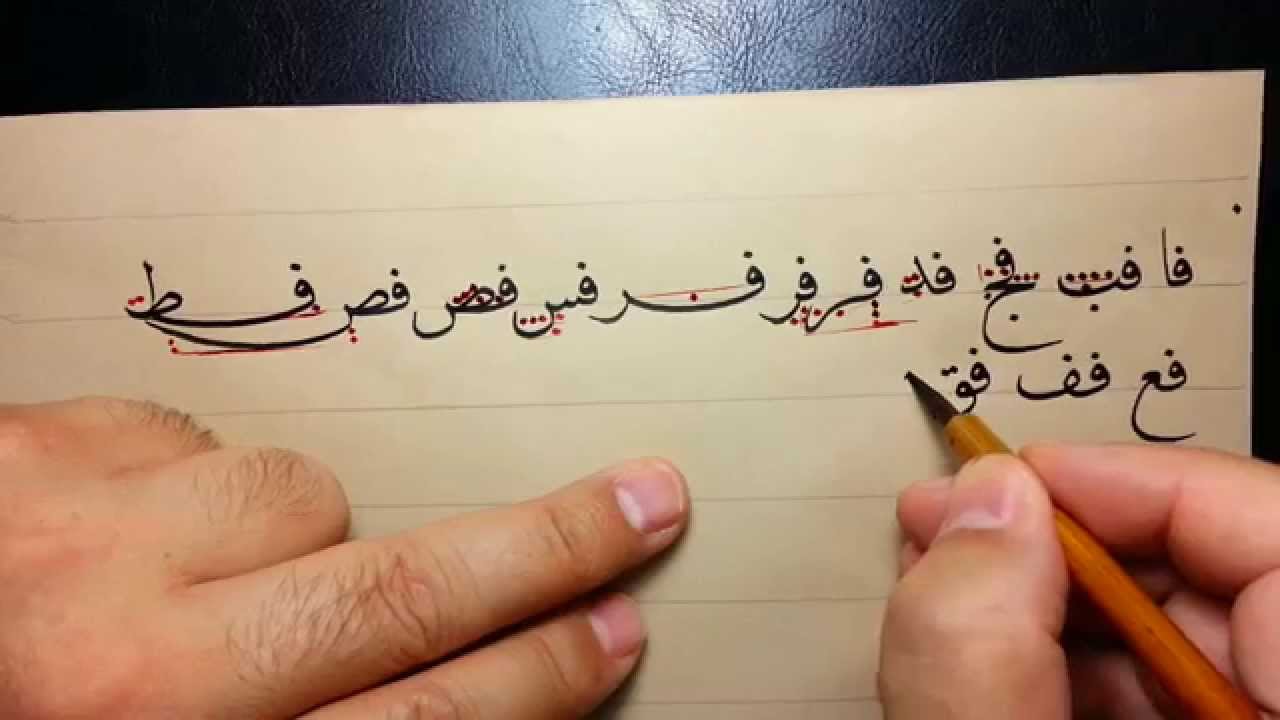 فا فب فج فد فر فر فر فس فص فص فط
فع فف فق